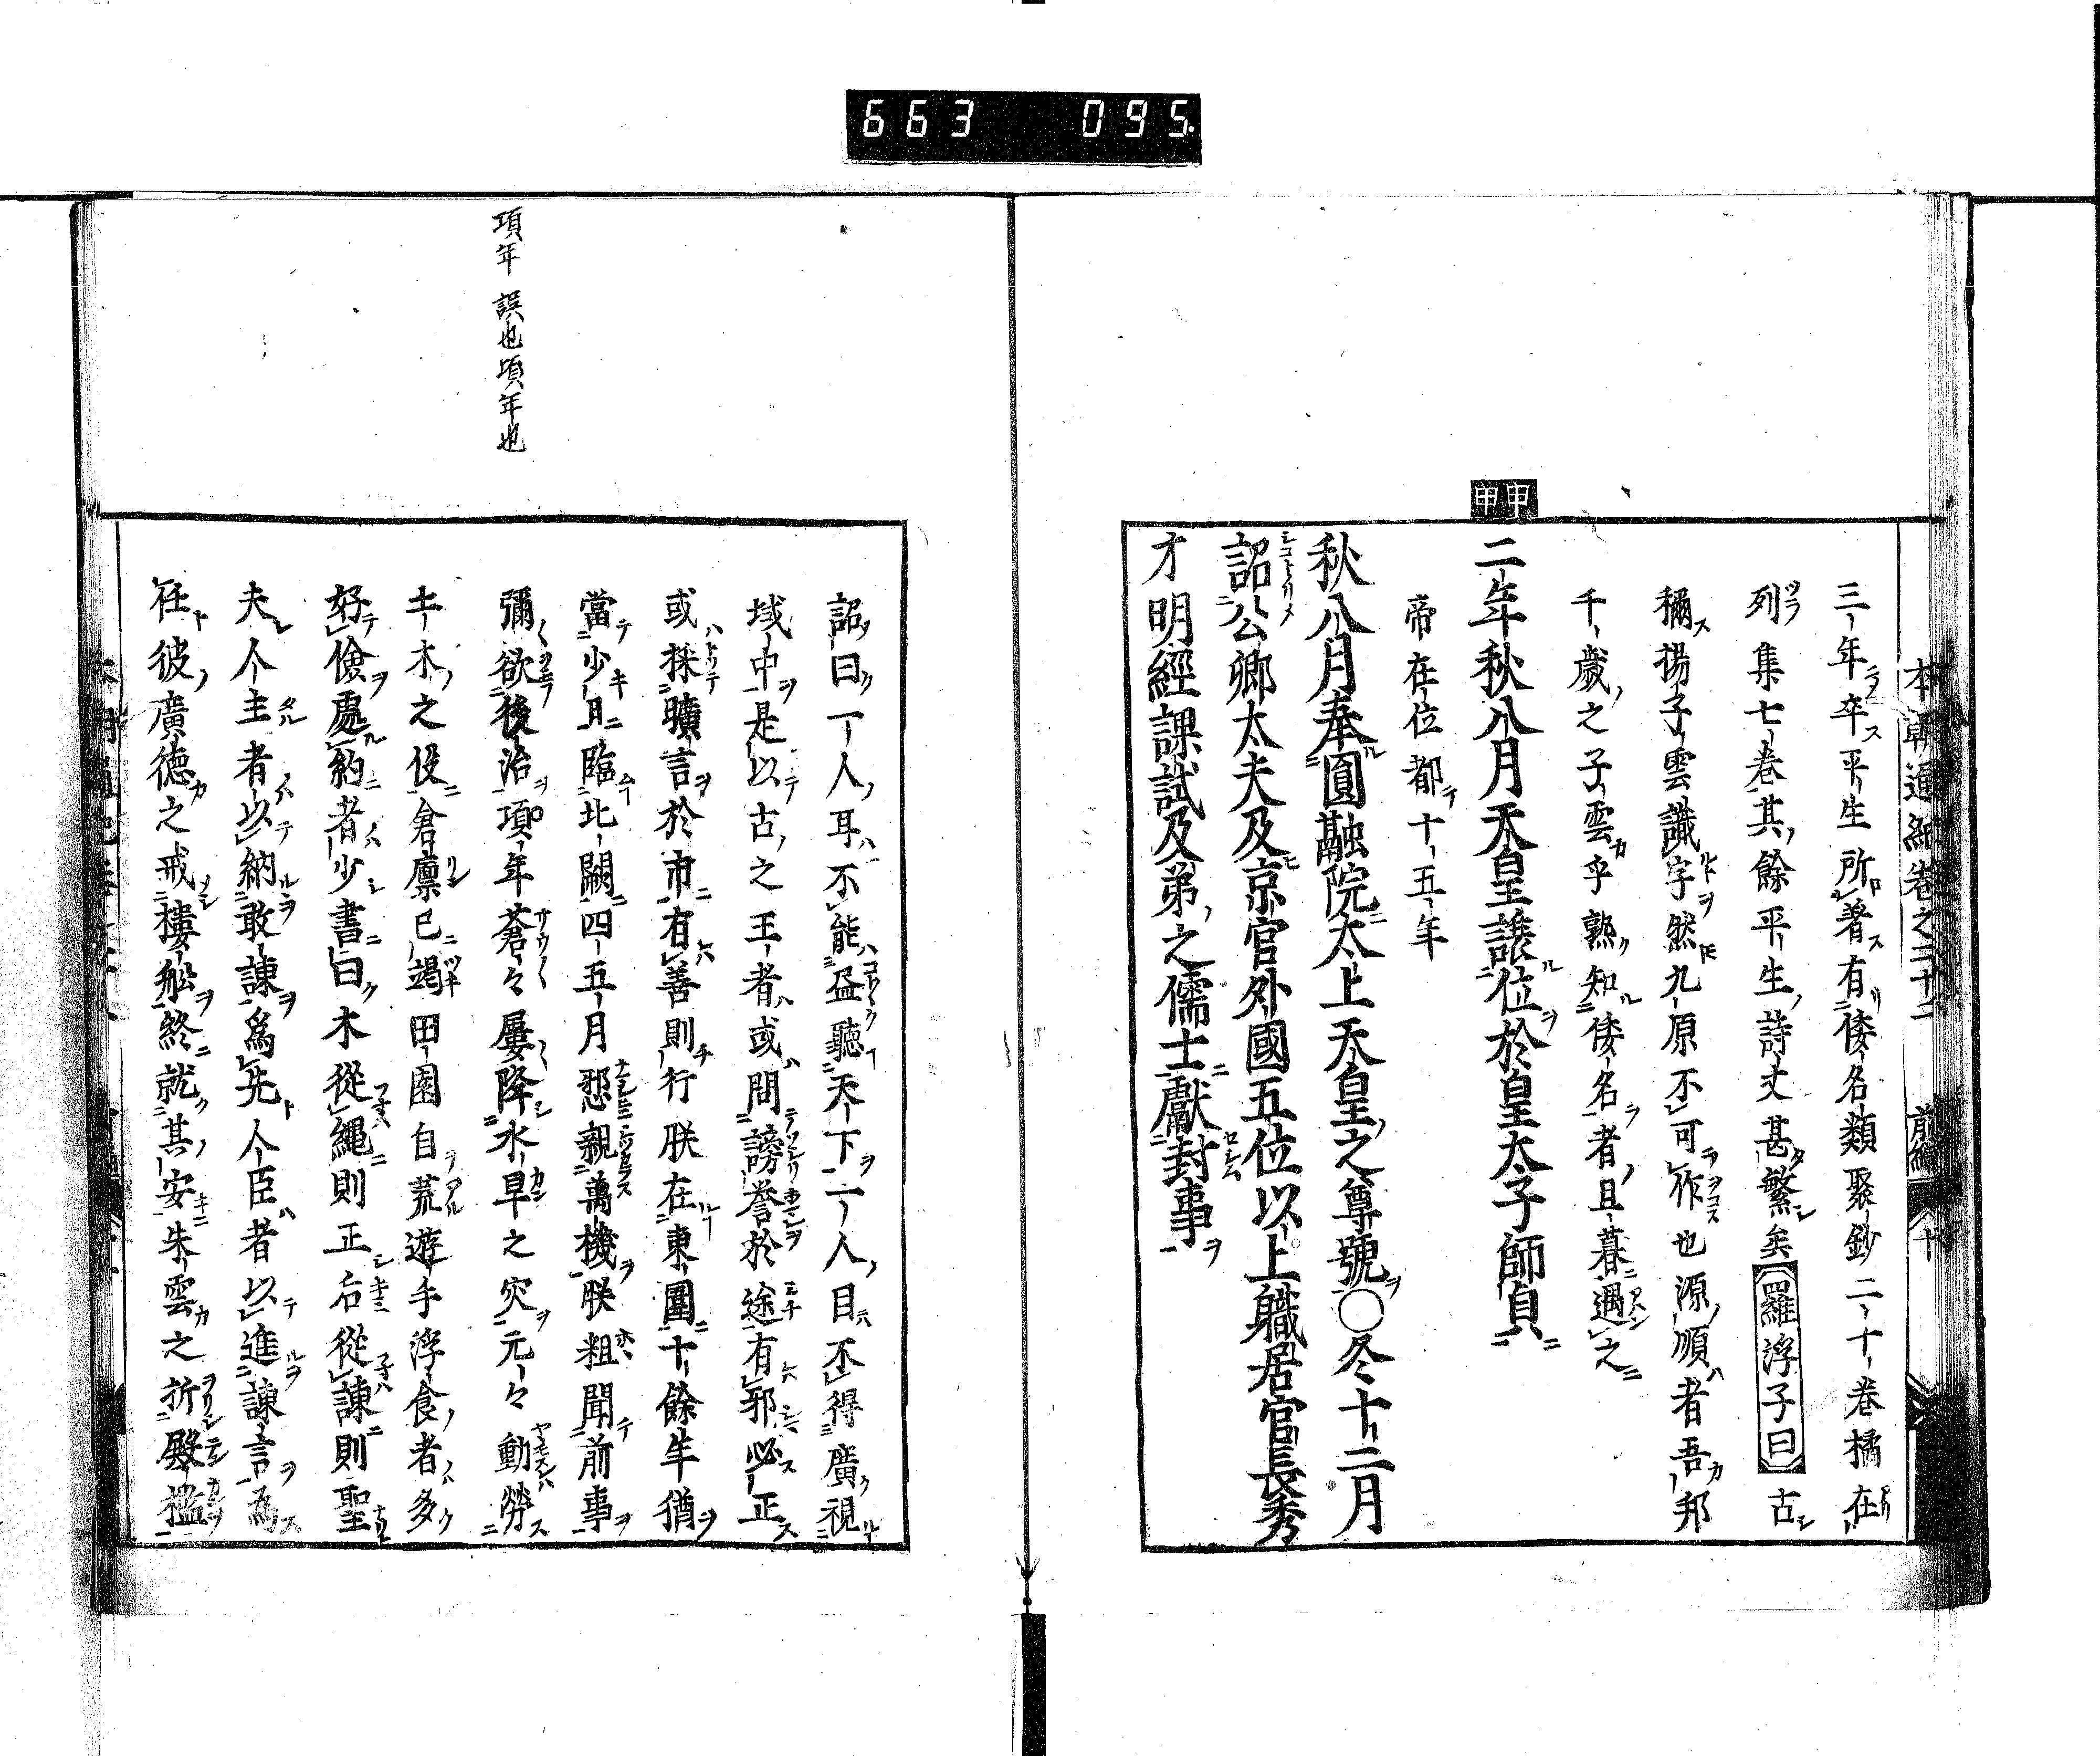 663 095.
本朝通紀卷之二十二 前編 十
三年卒平生所著有倭名類聚鈔二十卷橘在
列集七卷其餘平生詩文甚繁矣羅浮子曰古
稱揚子雲識字然九原不可作也源順者吾邦
千歲之子雲乎熟知倭名者且暮遇之
甲申
二年秋八月天皇讓位於皇太子師貞
帝在位都十五年
秋八月奉圓融院太上天皇之尊號○冬十二月
詔公卿太夫及京官外國五位以上職居官長秀
才明經課試及第之儒士獻封事
詔曰一人耳不能益聽天下一人目不得廣視
域中是以古之王者或問謗譽於途有邪必正
或採曠言於市有善則行朕在東圍十餘年猶
當少月臨北闕四五月懇親萬機朕粗聞前事
彌欲後治項年蒼々屢降水旱之灾元々動勞
項年 誤也頃年也
土木之役倉廪已竭田園自荒遊手浮食者多
好儉處約者少書曰木從繩則正后從諫則聖
夫人主者以納敢諫爲先人臣者以進諫言爲
任彼廣德之戒樓船終就其安朱雲之折殿檻